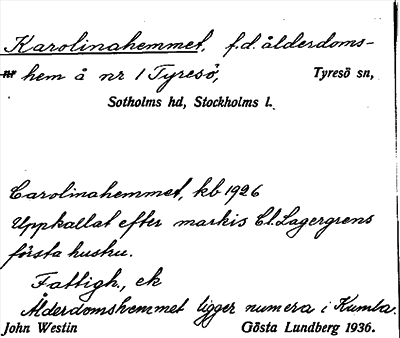 Karolinahemmet, f.d. ålderdoms-
hem å nr 1 Tyresö, Tyresö sn,
Sotholms hd, Stockholms l.
Carolinahemmet, kb 1926
Uppkallat efter markis Cl. Lagergrens
första hustru.
Fattigh., ek
Ålderdomshemmet ligger numera i Kumla.
John Westin Gösta Lundberg 1936.